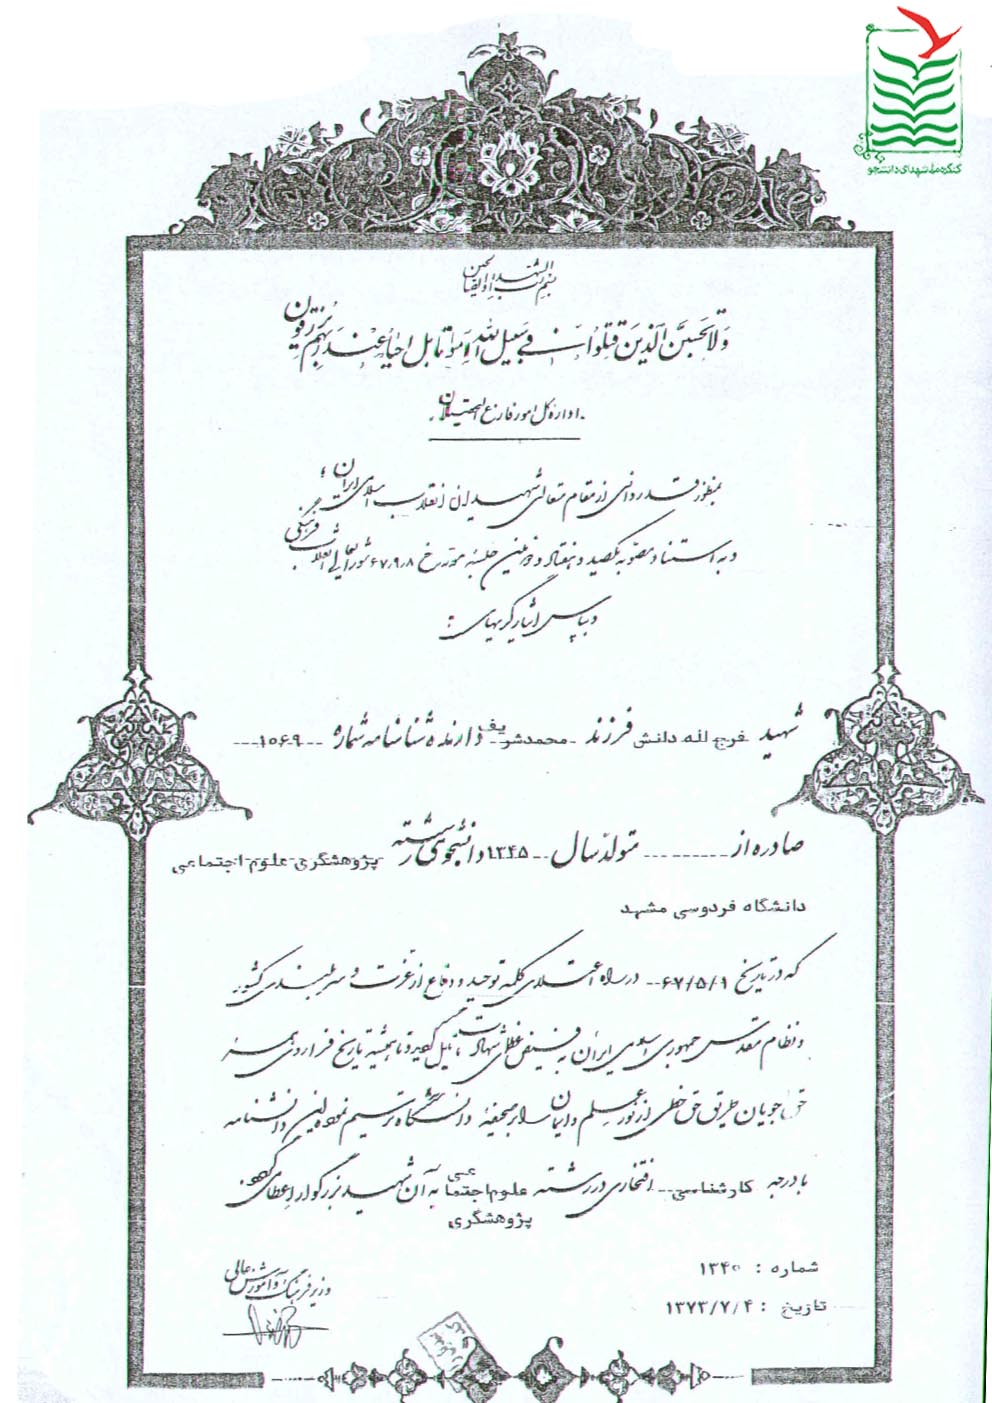 کنگره ملی شهدای دانشجو
بسم رب الشهداء و الصدیقین
ولا تحسبن الذین قتلوا فی سبیل الله امواتا بل احیاء عند ربهم یرزقون
اداره کل امور فارغ التحصیلان
بمنظور قدردانی از مقام متعالی شهیدان انقلاب اسلامی ایران ؛
و به استناد مصوبه یکصد و هفتاد و دومین جلسه مورخ ۶۷/۹/۸ شورایعالی انقلاب فرهنگی
و بپاس ایثارگریهای :
شهید فرج اله دانش فرزند محمدشریف دارنده شناسنامه شماره ۱۵۶۹
صادره از متولد سال ۱۳۴۵ دانشجوی رشته پژوهشگری علوم اجتماعی
دانشگاه فردوسی مشهد
که در تاریخ ۶۷/۵/۱ در راه اعتلای کلمه توحید و دفاع از عزت و سربلندی کشور
و نظام مقدس جمهوری اسلامی ایران به فیض عظمای شهادت نایل گردید و تا همیشه تاریخ فراروی همه
حق جویان طریق حق خطی از نور علم و ایمان را بر صحیفه دانشگاه ترسیم نموده این دانشنامه
با درجه کارشناسی افتخاری در رشته علوم اجتماعی به آن شهید بزرگوار اعطا می گردد.
پژوهشگری
شماره : ۱۳۴۰
تاریخ : ۱۳۷۳/۷/۴
وزیر فرهنگ و آموزش عالی